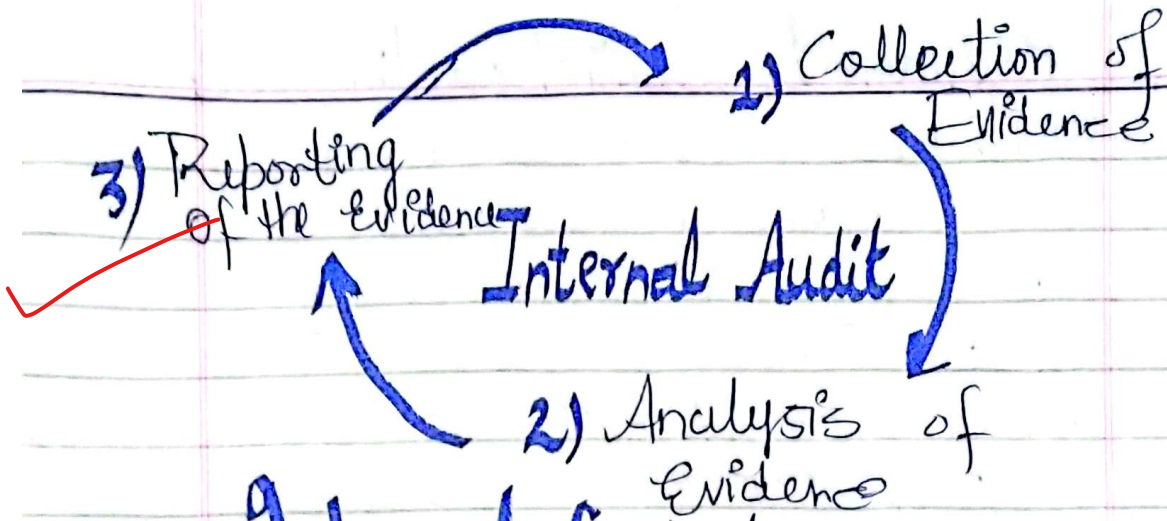 1) Collection of
Evidence
3) Reporting
of the Evidence
Internal Audit
2) Analysis of
Evidence